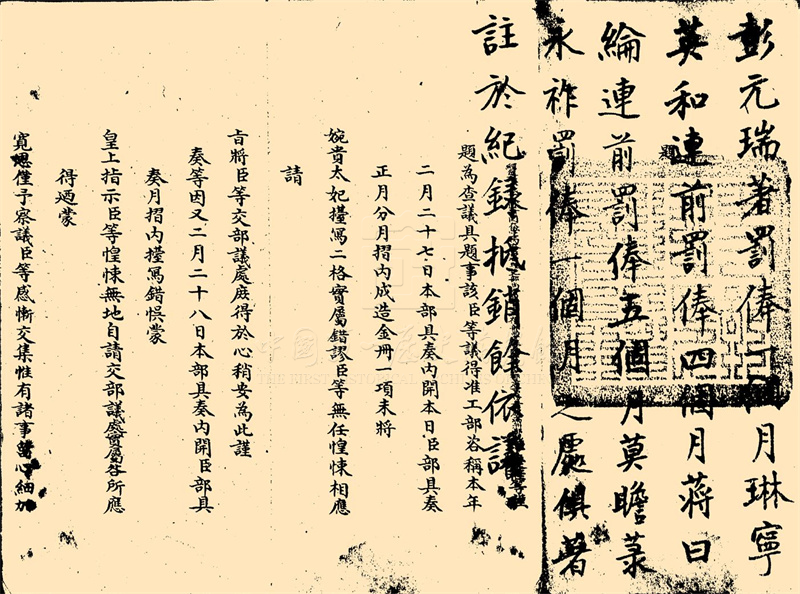 彭元瑞著罰俸一個月琳寧
英和連前罰俸四個月蔣曰
綸連前罰俸五個月莫瞻菉
永祚罰俸一個月之處俱著
註於紀錄抵銷餘依議
題
題為查議具題事該臣等議得准工部咨稱本年
二月二十七日本部具奏內開本日臣部具奏
正月分月摺內成造金冊一項未將
婉貴太妃擡寫二格實屬錯謬臣等無任惶悚相應
請
旨將臣等交部議處庶得於心稍安為此謹
奏等因又二月二十八日本部具奏內開臣部具
奏月摺內擡寫錯悞蒙
皇上指示臣等惶悚無地自請交部議處實屬咎所應
得迺蒙
寬恩僅予察議臣等感慚交集惟有諸事留心細加